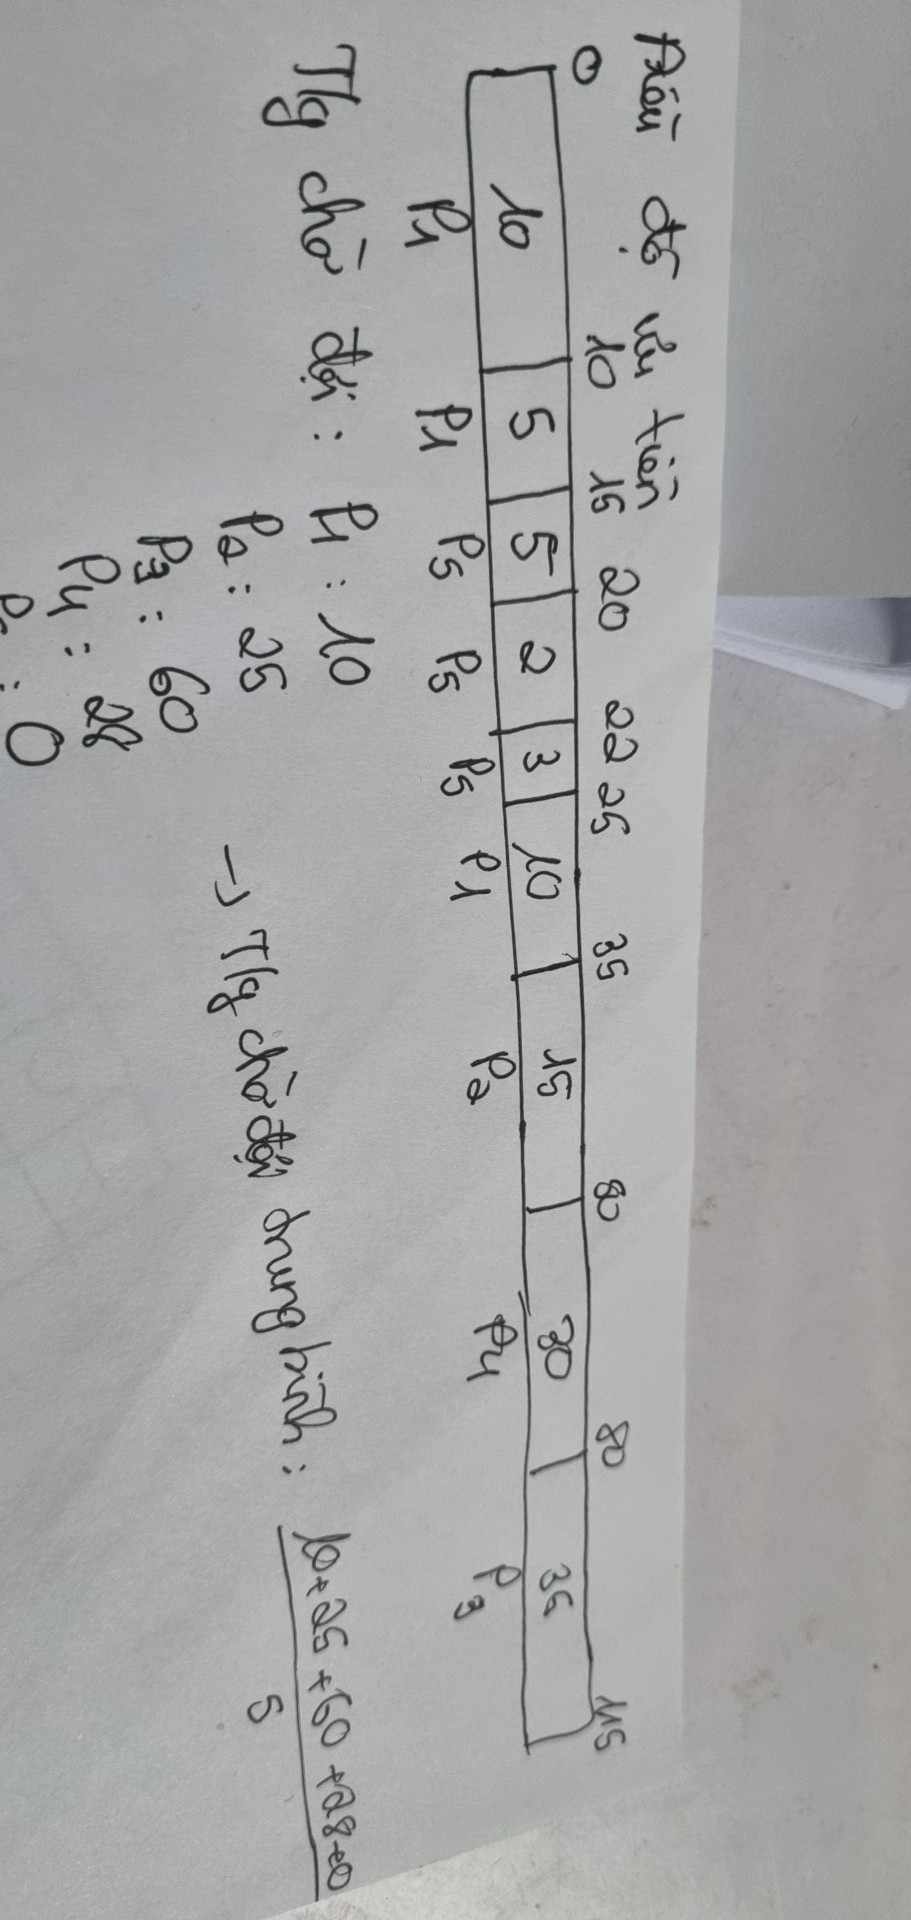 Điều độ ưu tiên
0 10 15 20 22 25 35 80 80 115
10 5 5 2 3 10 15 30 35
P1 P1 P5 P5 P5 P1 P2 P4 P3
T/g chờ đợi : P1 : 10
P2 : 25
→ T/g chờ đợi trung bình : (10+25+60+28+0)/5
P3 : 60
P4 : 28
: 0